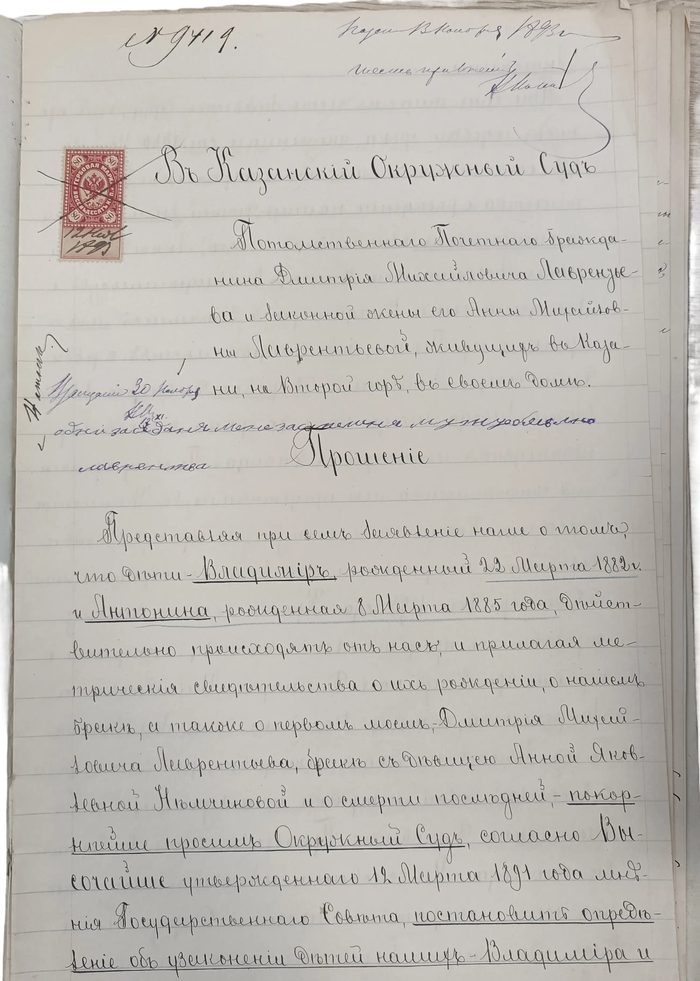 № 9419.
Ноября 1893 г.
Въ Казанскій Окружный Судъ
80 80
80 80
1893
Потомственнаго Почетнаго Гражда-
нина Дмитрія Михайловича Лаврентье-
ва и законной жены его Анны Михайлов-
ны Лаврентьевой, живущихъ въ Каза-
ни, на Второй горѣ, въ своемъ домѣ.
20 Ноября
Прошеніе
Представляя при семъ заявленіе наше о томъ,
что дѣти - Владиміръ, рожденный 22 Марта 1882 г.
и Антонина, рожденная 8 Марта 1885 года, дѣйст-
вительно происходятъ отъ насъ, и прилагая ме-
трическія свидѣтельства о ихъ рожденіи, о нашемъ
бракѣ, а также о первомъ моемъ, - Дмитрія Михай-
ловича Лаврентьева, бракѣ съ дѣвицею Анной Яков-
левной Нѣмчиновой и о смерти послѣдней, - покор-
нѣйше просимъ Окружный Судъ, согласно Вы-
сочайше утвержденнаго 12 Марта 1891 года мнѣ-
нія Государственнаго Совѣта, постановить опредѣ-
леніе объ узаконеніи дѣтей нашихъ - Владиміра и